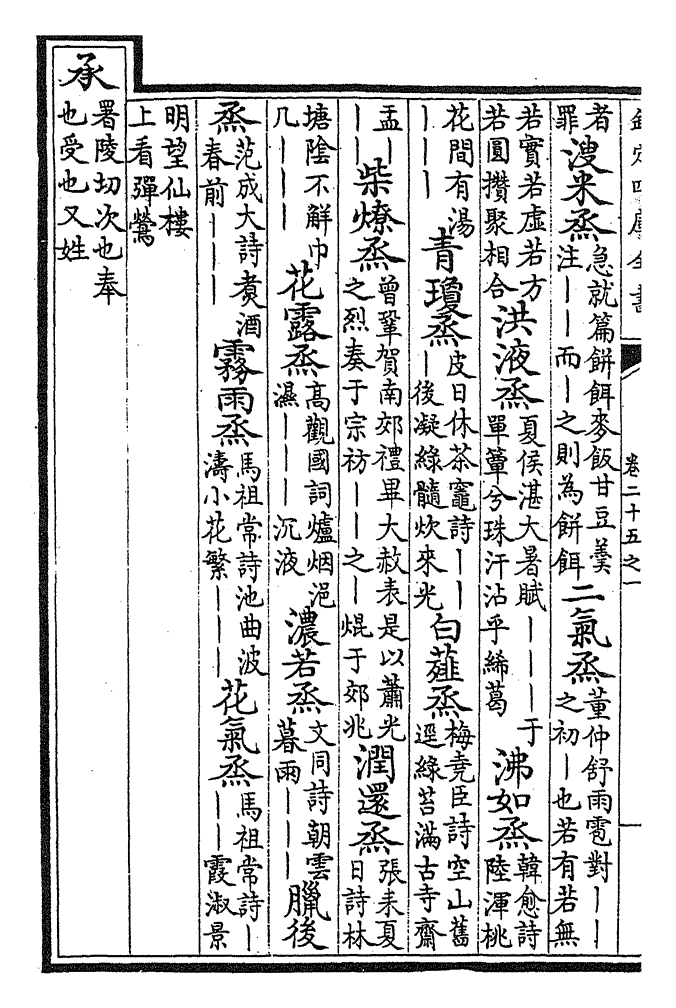 欽定四庫全書 卷二十五之一
者罪溲米烝急就篇餅餌麥飯甘豆羹注｜｜而｜之則為餅餌二氣烝董仲舒雨雹對｜｜之初｜也若有若無
若實若虛若方若圓攢聚相合洪液烝夏侯湛大暑賦｜｜｜于單簟兮珠汗沾乎絺葛沸如烝韓愈詩陸渾桃
花間有湯｜｜｜青瓊烝皮日休茶竈詩｜｜｜後凝綠髓炊來光白薤烝梅堯臣詩空山舊逕綠苔滿古寺齋
盂｜｜｜柴燎烝曾鞏賀南郊禮畢大赦表是以蕭光之烈奏于宗祊｜｜之｜焜于郊兆潤還烝張耒夏日詩林
塘陰不解巾几｜｜｜花露烝高觀國詞爐烟浥濕｜｜｜沉液濃若烝文同詩朝雲暮雨｜｜｜臘後
烝范成大詩煑酒春前｜｜｜霧雨烝馬祖常詩池曲波濤小花繁｜｜｜花氣烝馬祖常詩｜｜｜霞淑景
明望仙樓上看彈鶯
承署陵切次也奉也受也又姓